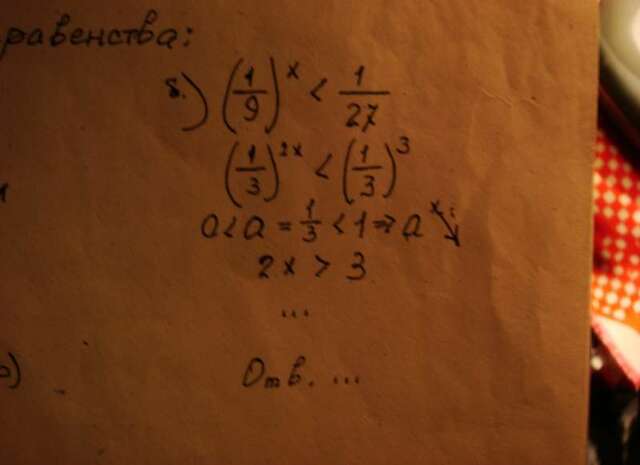 равенства:
б.) (1/9)^x < 1/27
(1/3)^2x < (1/3)^3
0 < a = 1/3 < 1 => a^x ↘
2x > 3
...
Отв. ...